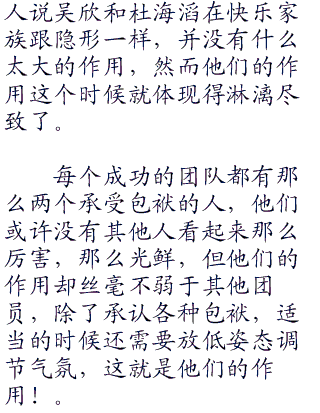 人说吴欣和杜海滔在快乐家
族跟隐形一样，并没有什么
太大的作用，然而他们的作
用这个时候就体现得淋漓尽
致了。
每个成功的团队都有那
么两个承受包袱的人，他们
或许没有其他人看起来那么
厉害，那么光鲜，但他们的
作用却丝毫不弱于其他团
员，除了承认各种包袱，适
当的时候还需要放低姿态调
节气氛，这就是他们的作
用！。